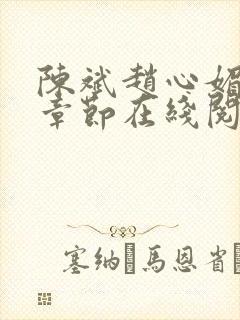 陳斌趙心媚
章節在綫閱
塞納·馬恩省